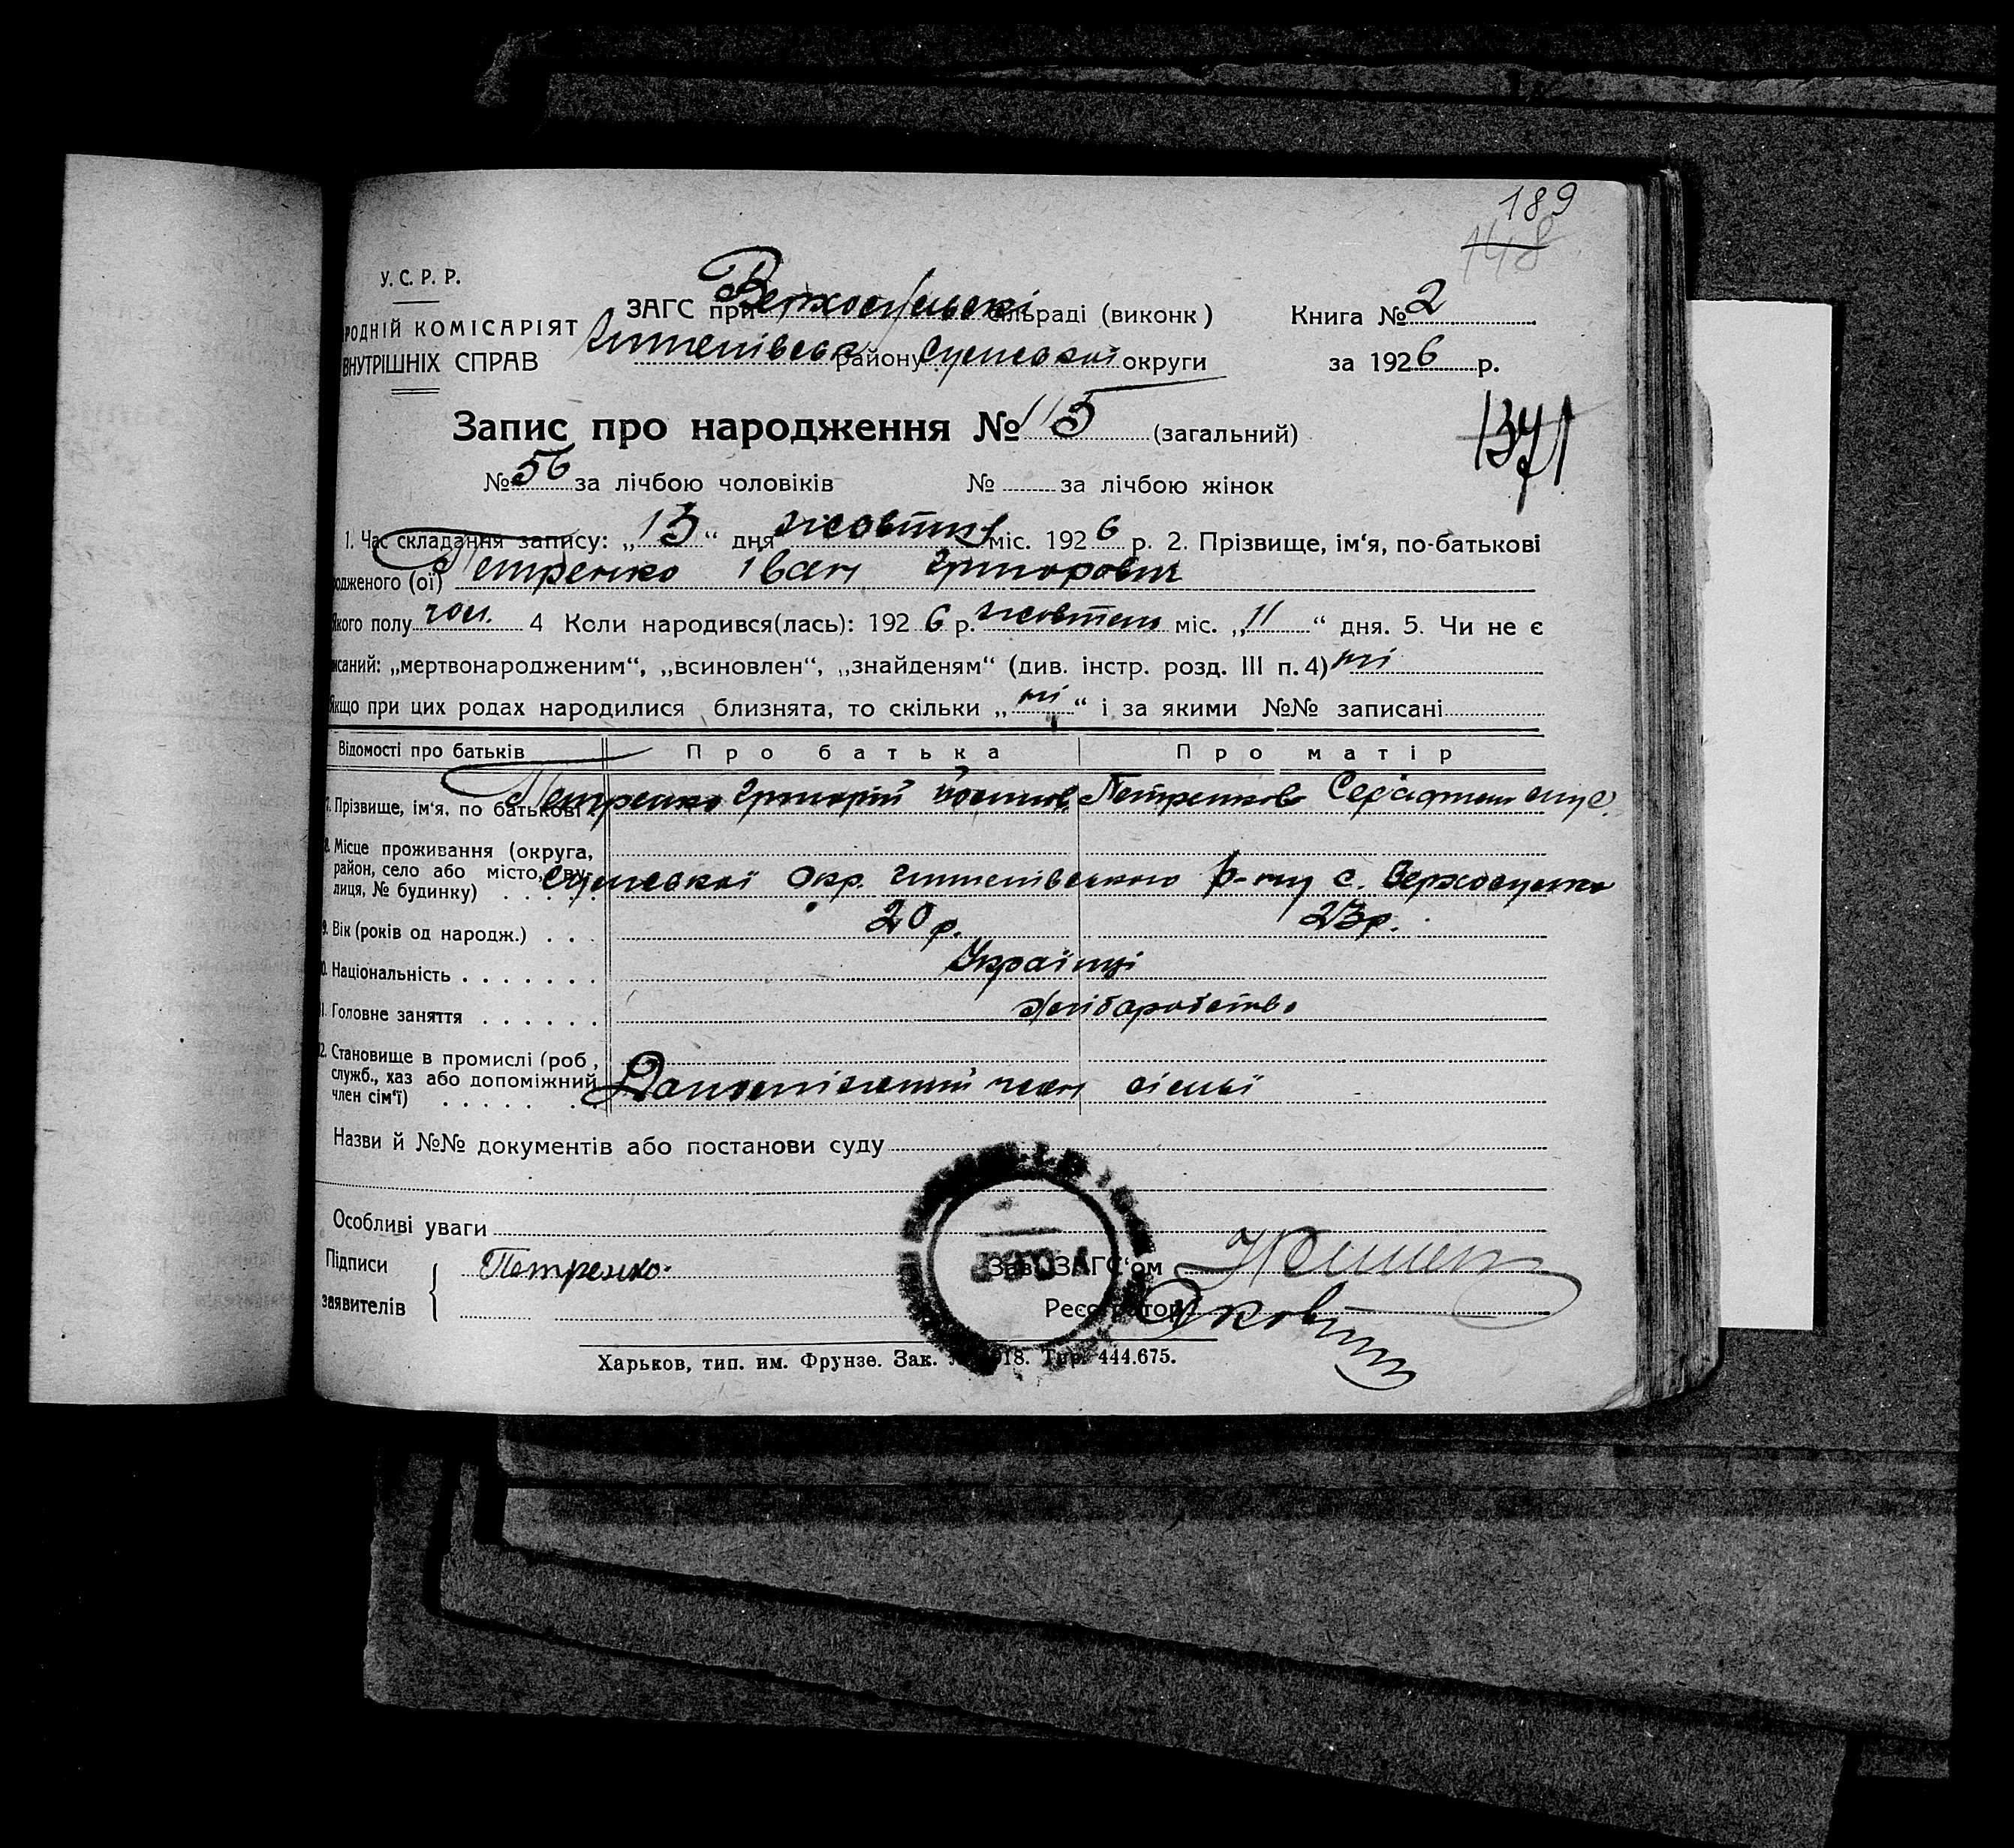 189
148
У. С. Р. Р.
ЗАГС при Верхосульській сільраді (виконк)
Книга № 2
РОДНІЙ КОМІСАРІЯТ
ВНУТРІШНІХ СПРАВ
району Сумської округи
за 1926 р.
Запис про народження № 115 (загальний)
№ 56 за лічбою чоловіків № за лічбою жінок
1. Час складання запису: „13“ дня жовтня міс. 1926 р. 2. Прізвище, ім‘я, по-батькові
одженого (ої) Петренко Іван Григорович
якого полу чол. 4 Коли народився(лась): 1926 р. жовтня міс. „11“ дня. 5. Чи не є
исаний: „мертвонародженим“, „всиновлен“, „знайденям“ (див. інстр. розд. III п. 4) ні
Якщо при цих родах народилися близнята, то скільки „ні“ і за якими №№ записані
Відомості про батьків Про батька Про матір
7. Прізвище, ім‘я, по батькові Петренко Григорій Йосипов. Петренкова
8. Місце проживання (округа,
район, село або місто, ву-
лиця, № будинку) Сумської Окр. р-ну с. Верхосулка
9. Вік (років од народж.) 20 р. 23 р.
0. Національність Українці
1. Головне заняття Хліборобство
2. Становище в промислі (роб,
служб., хаз або допоміжний
член сім‘ї) Допоміжний член сімьї
Назви й №№ документів або постанови суду
Особливі уваги
Підписи
заявителів
Петренко
Зав. ЗАГС‘ом
Реєстратор
Харьков, тип. им. Фрунзе. Зак. 18. Тир. 444.675.